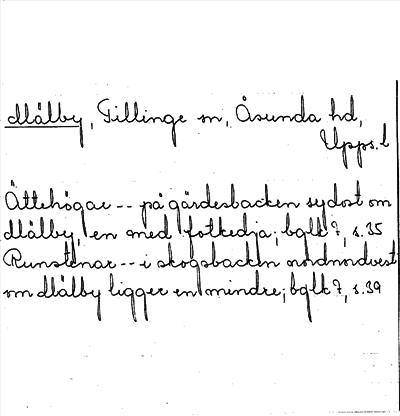 Mälby, Tillinge sn, Åsunda hd,
Upps. l
Ättehögar -- på gärdesbacken sydost om
Mälby, en med fotkedja; bglk 7, s. 35
Runstenar -- i skogsbacken nordnordvest
om Mälby ligger en mindre; bglk 7, s. 39